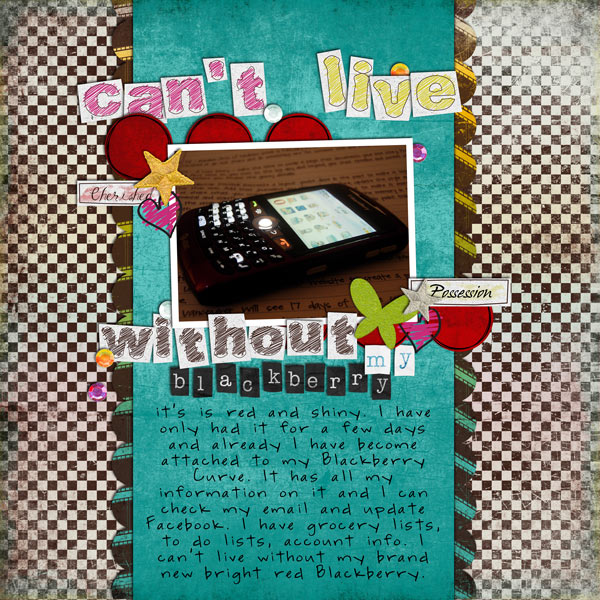 can't live
Cherished
Possession
without
my
blackberry
it's is red and shiny. I have
only had it for a few days
and already I have become
attached to my Blackberry
Curve. It has all my
information on it and I can
check my email and update
Facebook. I have grocery lists,
to do lists, account info. I
can't live without my brand
new bright red Blackberry.